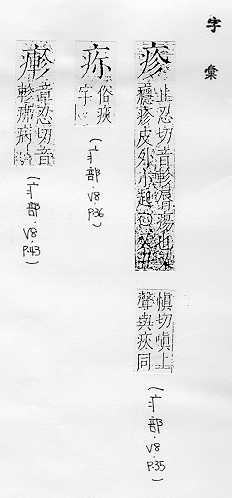 字彙
疹
止忍切音軫癮疹皮外小起
愼切嗔上聲與疢同
(疒部.V8.P.35)
疩
俗痰字
(疒部.V8.P.36)
瘮
章忍切音軫瘮病
(疒部.V8.P.43)